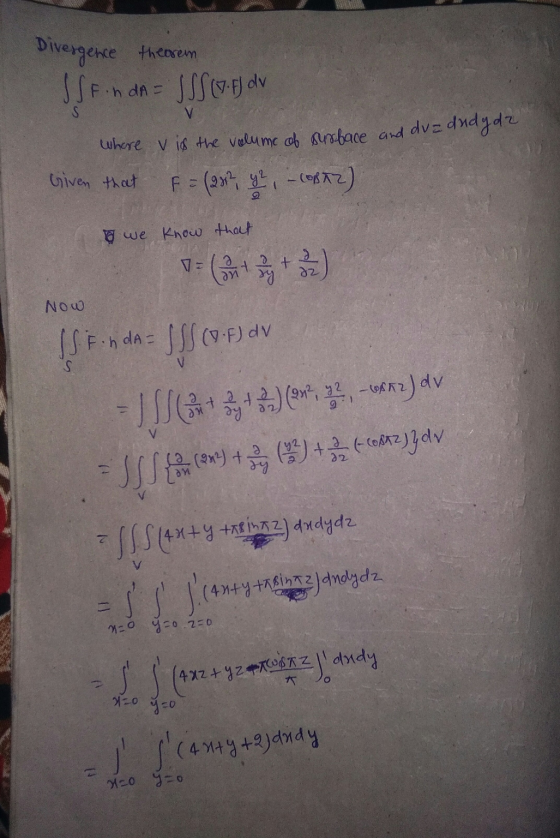 Divergence theorem
∬_S F·n dA = ∭_V (∇·F) dv
where V is the volume of surface and dv = dxdydz
Given that F = (2x², y²/2, -cosπz)
we know that
∇ = (∂/∂x + ∂/∂y + ∂/∂z)
Now
∬_S F·n dA = ∭_V (∇·F) dV
= ∭_V (∂/∂x + ∂/∂y + ∂/∂z)(2x², y²/2, -cosπz) dV
= ∭_V {∂/∂x (2x²) + ∂/∂y (y²/2) + ∂/∂z (-cosπz)} dv
= ∭_V (4x+y+πsinπz) dxdydz
= ∫_{x=0}^1 ∫_{y=0}^1 ∫_{z=0}^1 (4x+y+πsinπz) dxdydz
= ∫_{x=0}^1 ∫_{y=0}^1 (4xz+yz-πcosπz/π)_0^1 dxdy
= ∫_{x=0}^1 ∫_{y=0}^1 (4x+y+2) dxdy